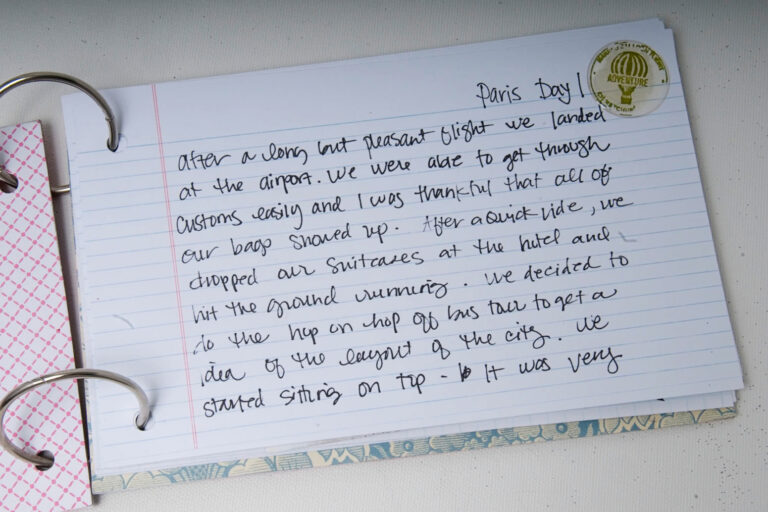 Paris Day 1
ADVENTURE
After a long but pleasant flight we landed
at the airport. We were able to get through
customs easily and I was thankful that all of
our bags showed up. After a quick ride, we
dropped our suitcases at the hotel and
hit the ground running. We decided to
do the hop on hop off bus tour to get a
idea of the layout of the city. We
started sitting on top - It was very